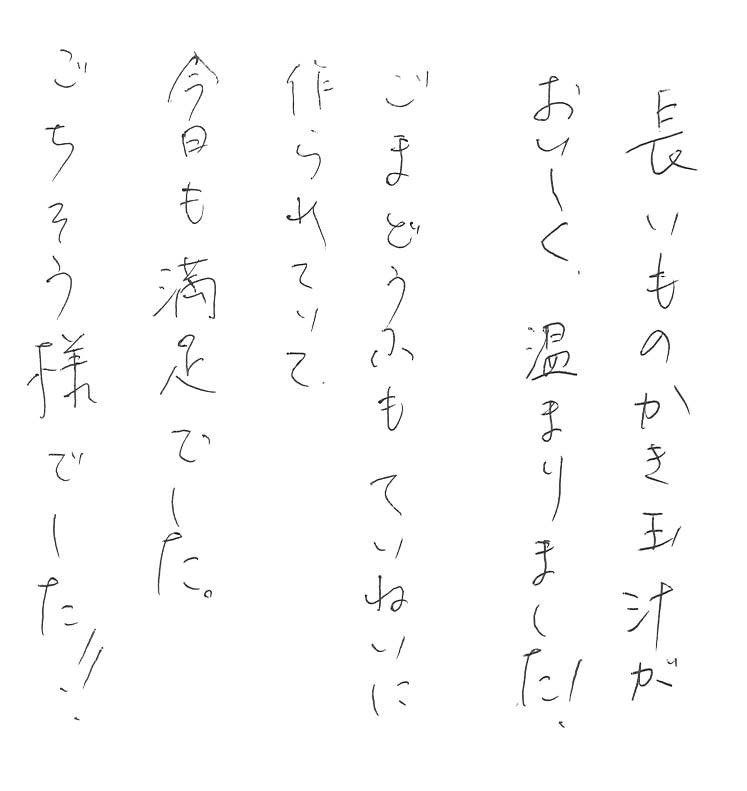 長いものかき玉汁が
おいしく、温まりました!
ごまどうふもていねいに
作られていて、
今日も満足でした。
ごちそう様でした!!